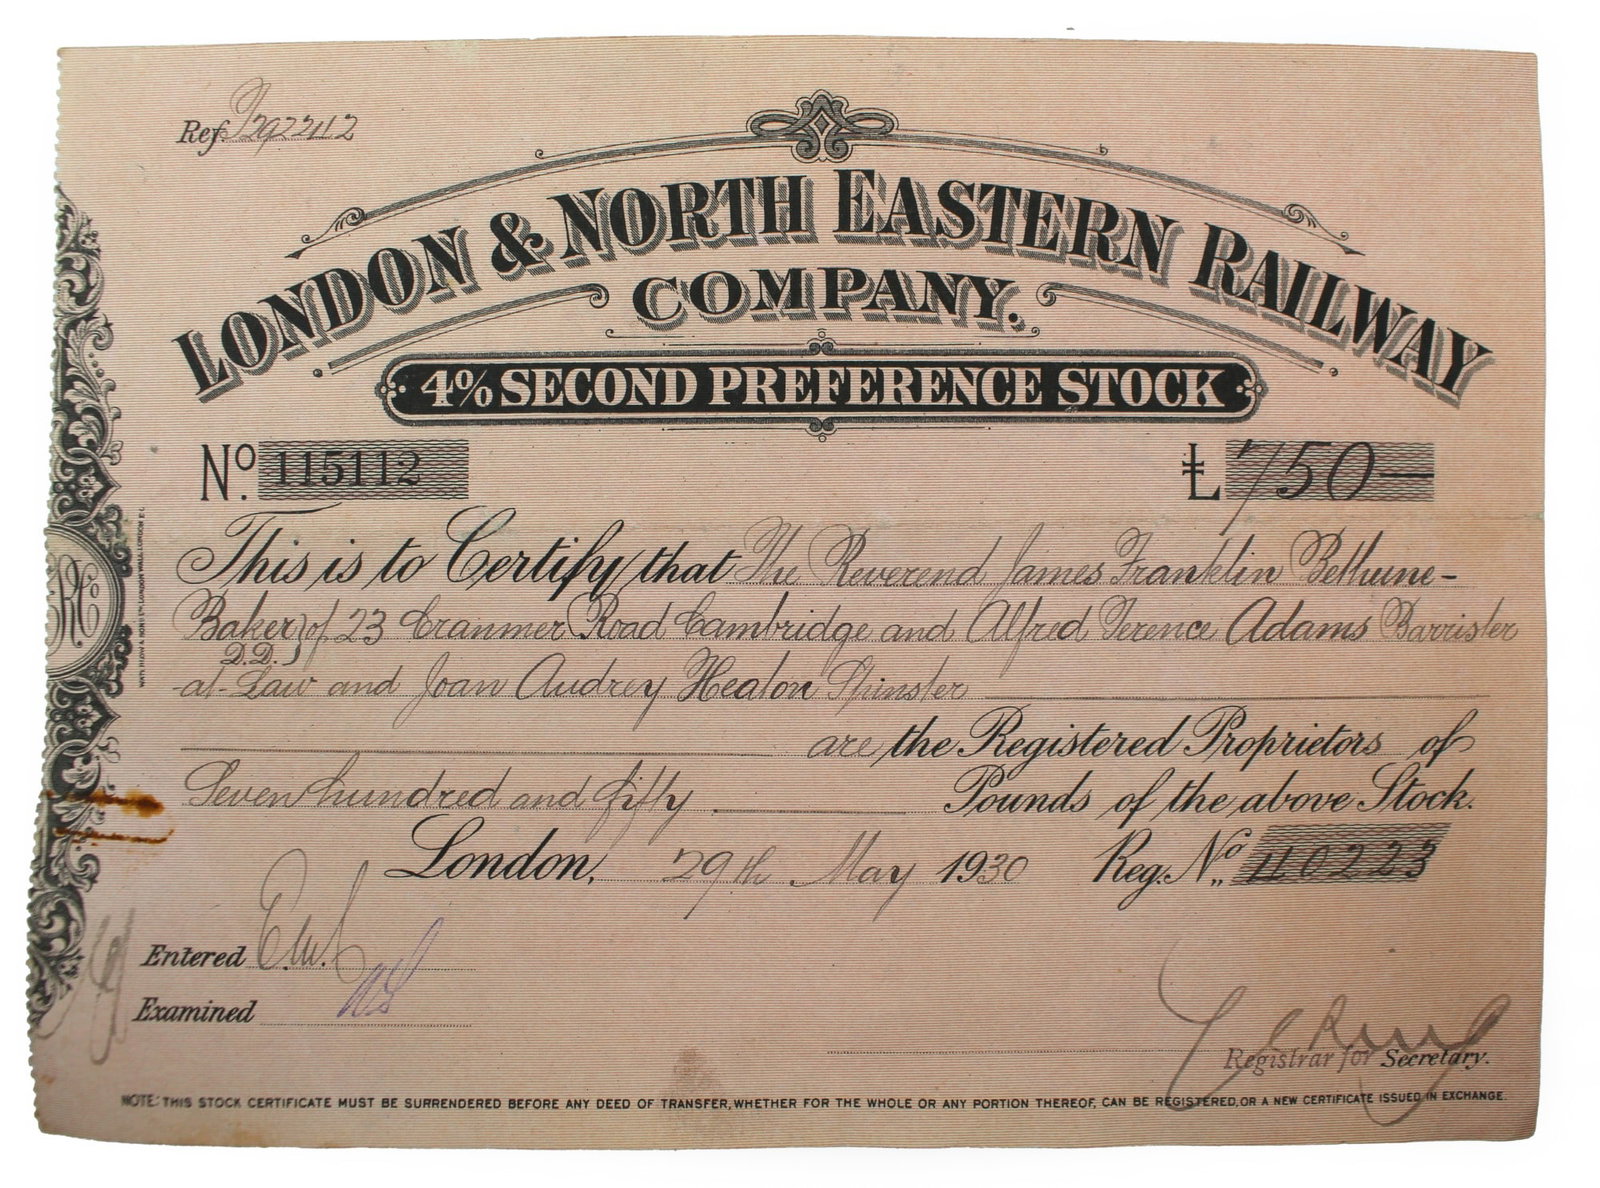 Ref. 
LONDON & NORTH EASTERN RAILWAY
COMPANY.
4% SECOND PREFERENCE STOCK
No. 115112 £ 750—
This is to Certify that The Reverend James Franklin Bethune-
Baker of 23 Cranmer Road Cambridge and Alfred Terence Adams Barrister
D.D.
-at-Law and Joan Audrey Heaton Spinster
are the Registered Proprietors of
Seven hundred and fifty Pounds of the above Stock.
London, 29th May 1930 Reg. No. 110223
Entered
Examined
Registrar for Secretary.
NOTE: THIS STOCK CERTIFICATE MUST BE SURRENDERED BEFORE ANY DEED OF TRANSFER, WHETHER FOR THE WHOLE OR ANY PORTION THEREOF, CAN BE REGISTERED, OR A NEW CERTIFICATE ISSUED IN EXCHANGE.